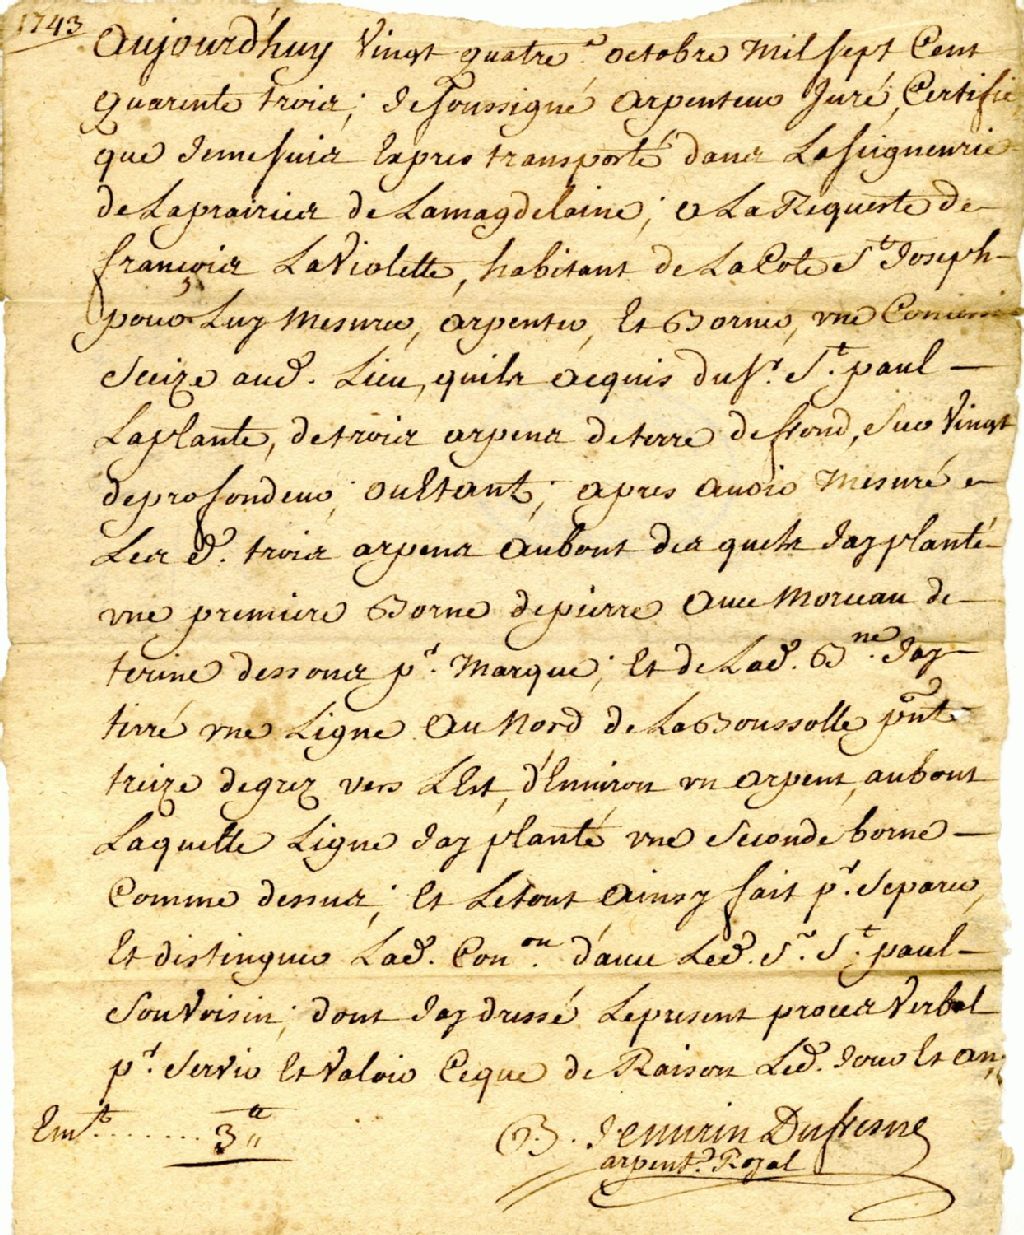 1743
Aujourd'huy Vingt quatre.e octobre Mil sept Cent
quarente trois; Je soussigné arpenteur Juré, Certifie
que Je me suis Expres transporté dans La seigneurie
de La prairies de Lamagdelaine; a La Requeste de
françois LaViolette, habitant de La Cote St Joseph
pour Luy Mesurer, arpenter, Et Borner, vne
seize aud. Lieu, quil a acquis du Sr. St. paul
Laplante, de trois arpens de terre de frond, sur Vingt
de profondeur; ou Etant; apres auoir Mesuré
Les d. trois arpens au bout des quels Jay planté
vne premiere Borne de pierre auec Morceau de
terine dessous pr. Marque; Et de Lad. Bne. Jay
tirré vne Ligne Au Nord de La Boussolle pnt
treize degrez vers LEst, d'Enuiron vn arpent, au bout
Laquelle Ligne Jay planté vne seconde borne
Comme dessus; Et Le tout Ainsy fait pr. separer,
Et distinguer Lad. Conon. d'auec Led. Sr. St. paul
son Voisin; dont Jay dressé Le present proces Verbal
pr. servir Et Valoir Ceque de Raison Led. Jour Et an;
Emt........3tt
Jenurin Dufresne
arpentr. Royal